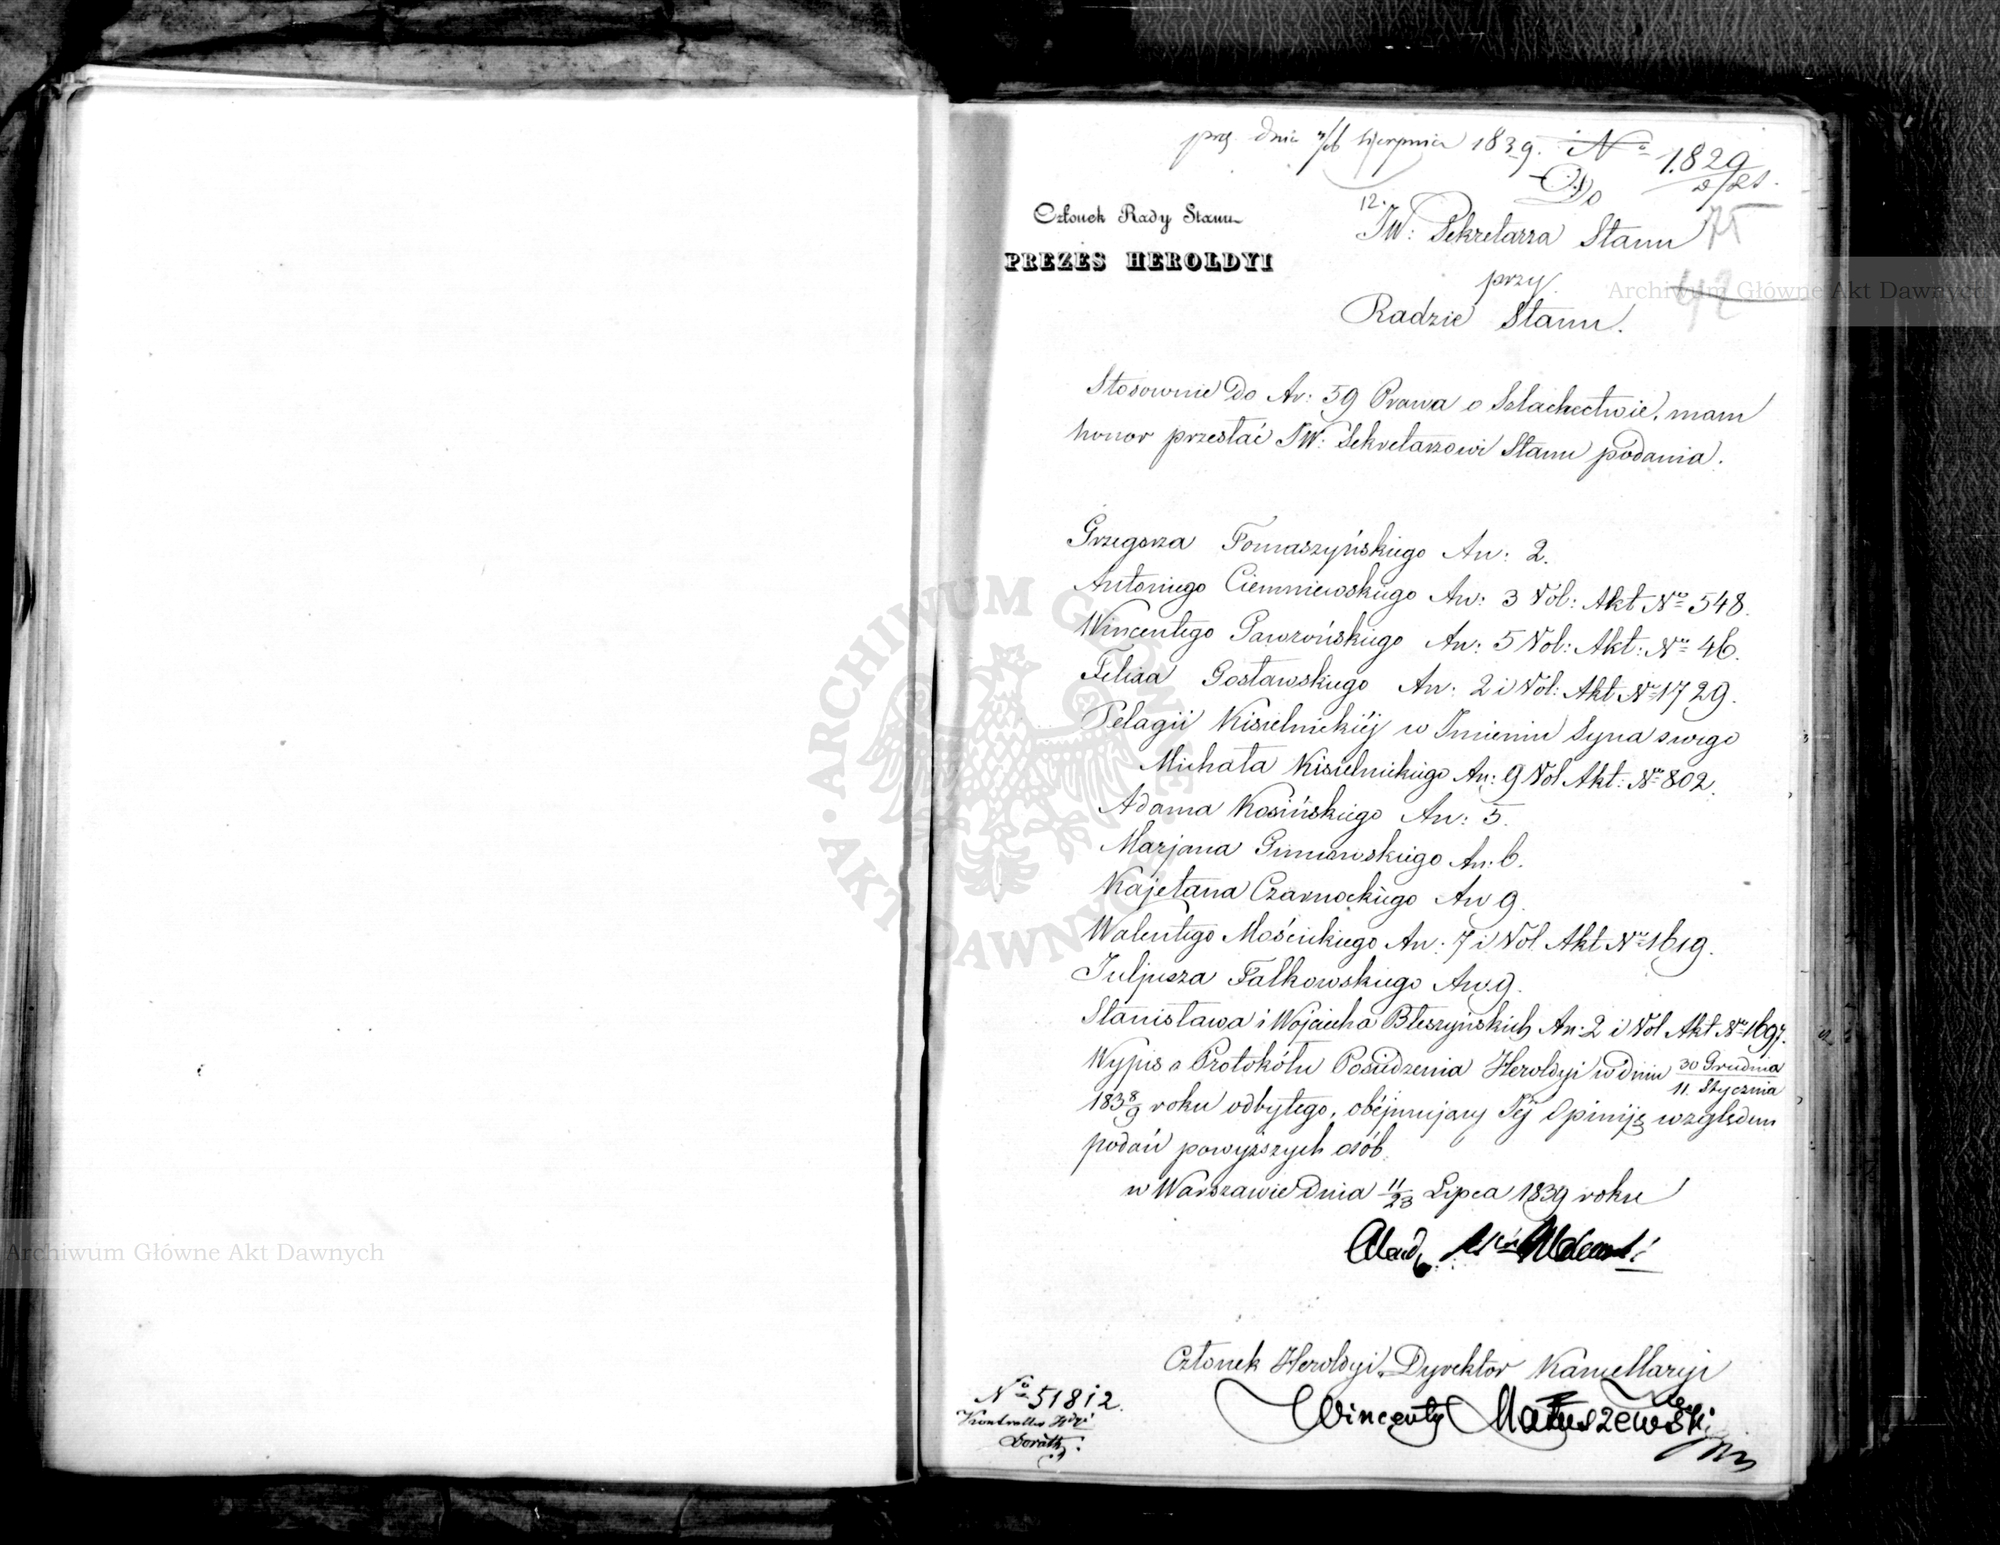 dnia 4/16 Sierpnia 1839. No 1,829
Do
12.
Członek Rady Stanu
PREZES HEROLDYI
JW: Sekretarza Stanu
75
przy
Radzie Stanu.
42
Stosownie do Ar: 59 Prawa o Szlachectwie, mam
honor przesłać JW: Sekretarzowi Stanu podania.
Grzegorza Tomaszyńskiego An: 2.
Antoniego Ciemniewskiego An: 3 Vol: Akt No 548.
Wincentego Gawrońskiego An: 5 Vol: Akt: No 46.
Felixa Gosławskiego An: 2 i Vol: Akt No 1729.
Pelagii Kisielnickiéj w Imieniu Syna swego
Michała Kisielnickiego An: 9 Vol Akt: No 802.
Adama Kosińskiego An: 5.
Marjana An: 6.
Kajetana Czarnockiego An 9.
Walentego Mościckiego An: 7 i Vol Akt No 1619.
Juljusza Falkowskiego An 9.
Stanisława i Wojciecha Błeszyńskich An: 2 i Vol Akt No 1697.
Wypis z Protokółu Posiedzenia Heroldyi w dniu 30 Grudnia
11. Stycznia
1838/9 roku odbytego, obéjmujący Jéj Opiniję względem
podań powyższych osób.
w Warszawie dnia 11/23 Lipca 1839 roku
Członek Heroldyi, Dyrektor Kancellaryi
Wincenty Matuszewski
No 51812.
Archiwum Główne Akt Dawnych
Archiwum Główne Akt Dawnych
ARCHIWUM GŁÓWNE AKT DAWNYCH